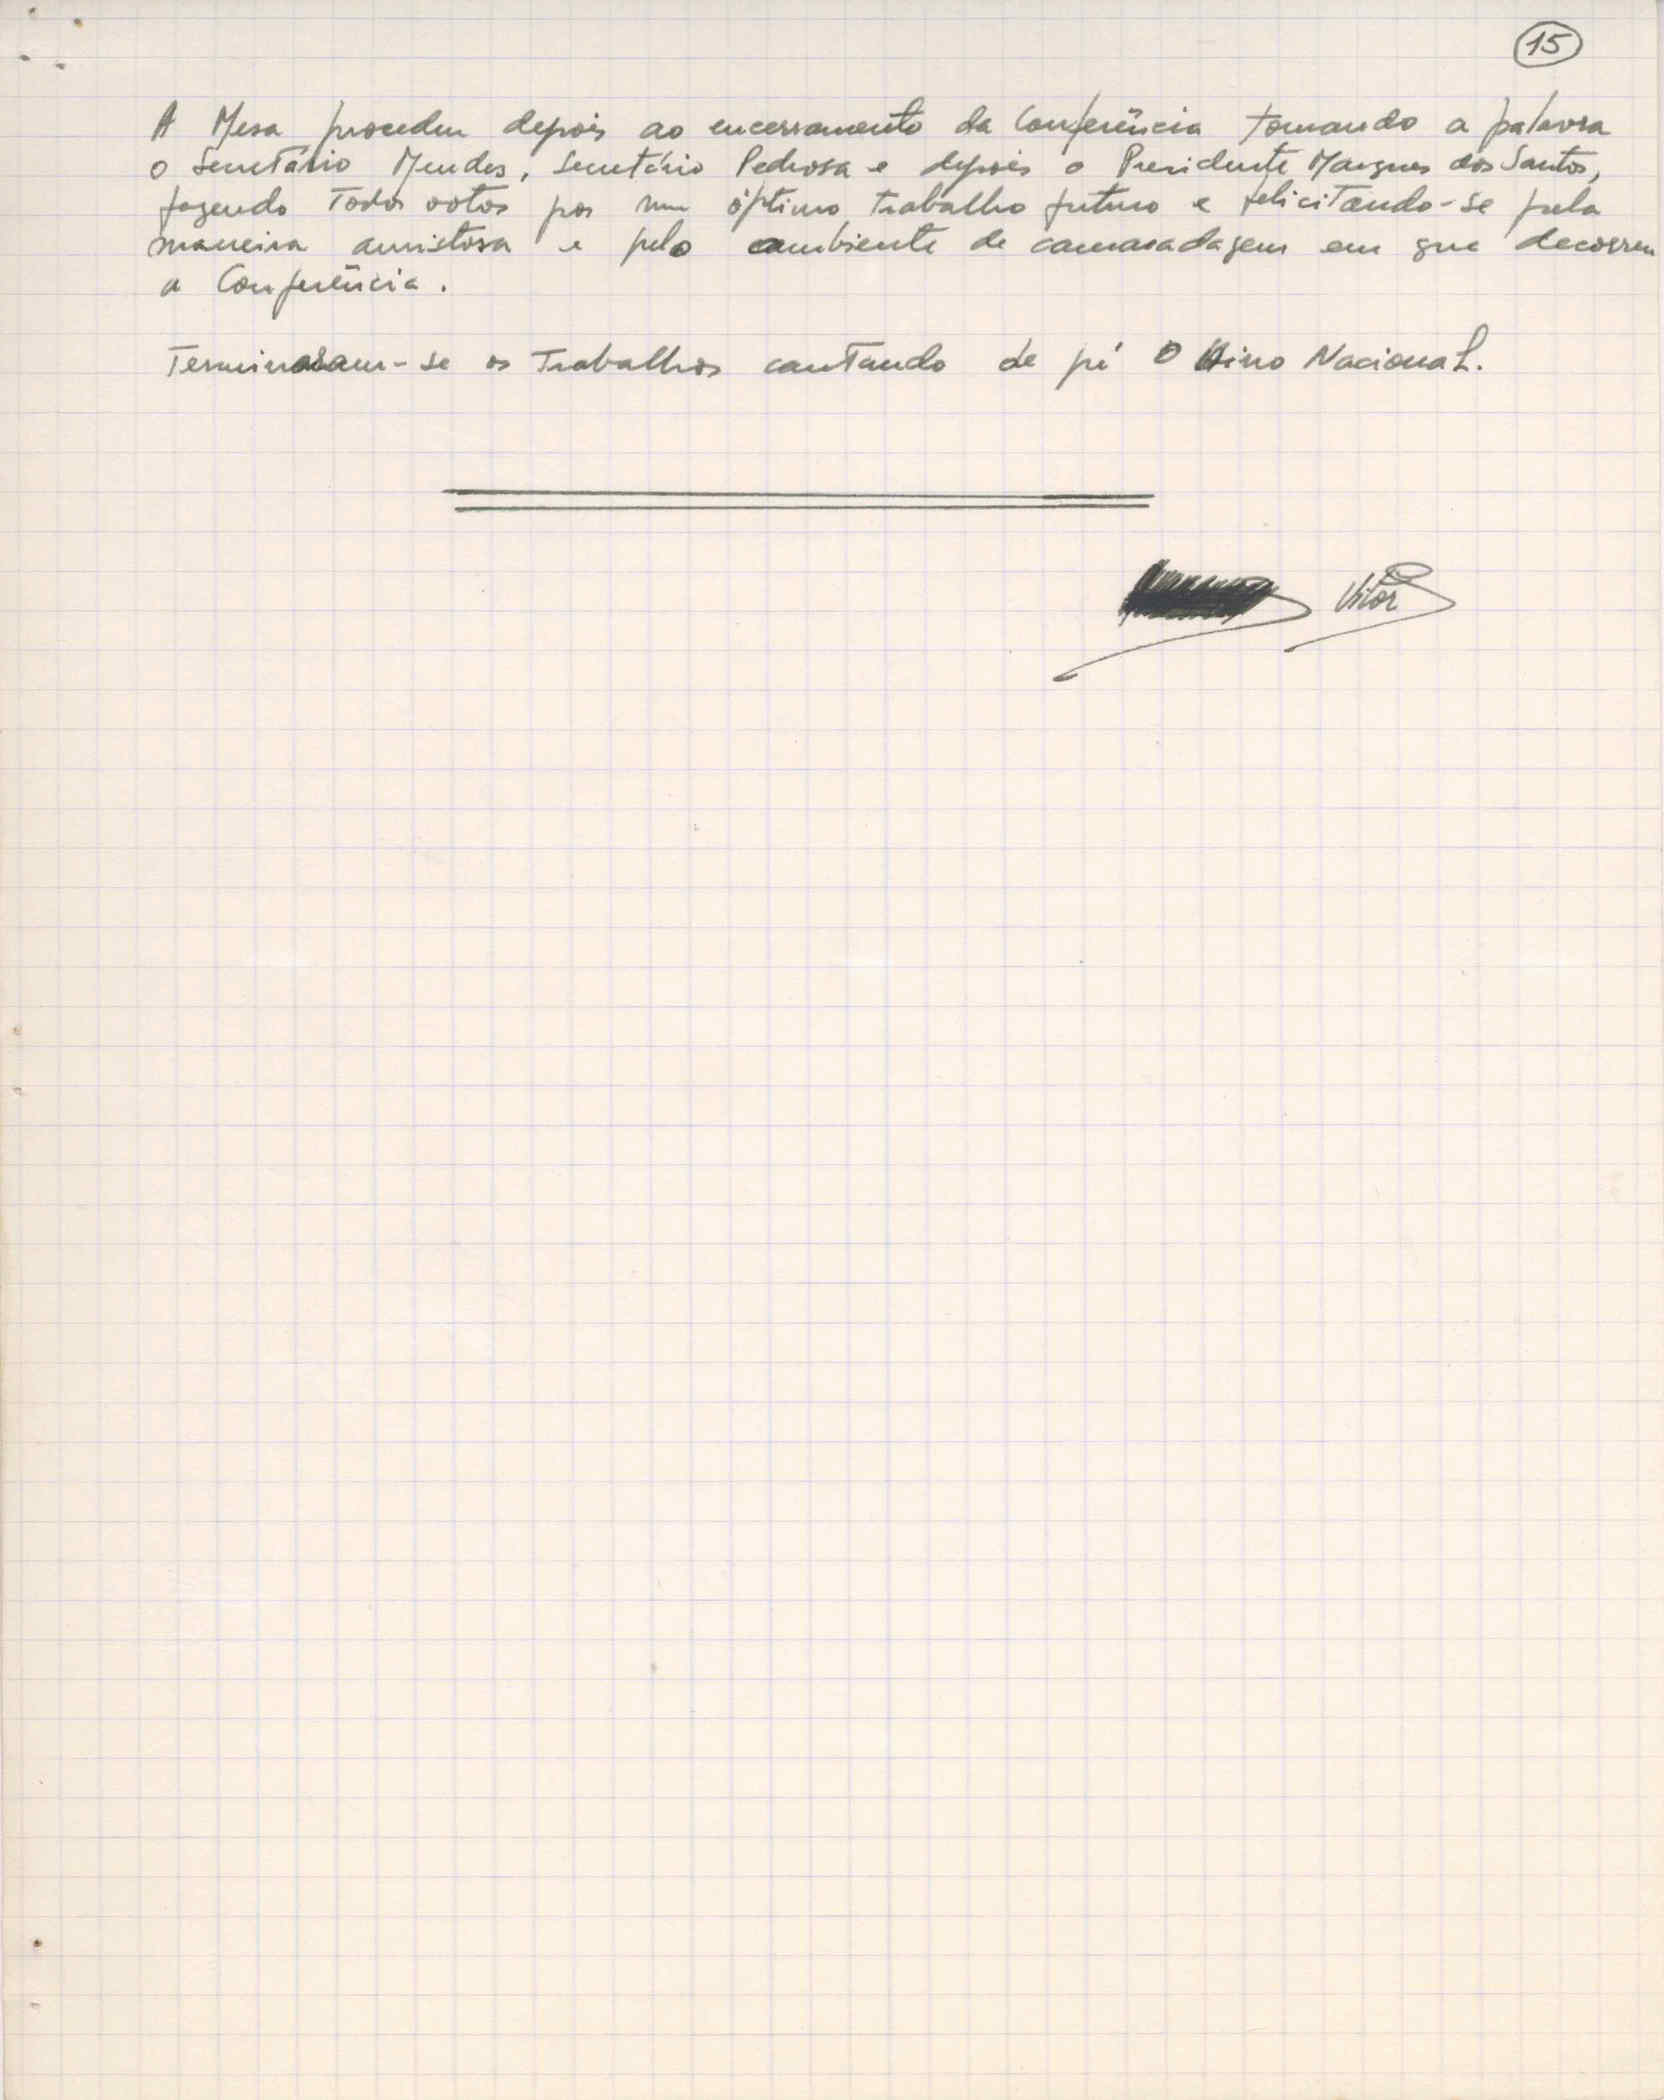 15
A Mesa procedeu depois ao encerramento da Conferência tomando a palavra
o Secretário Mendes, Secretário Pedrosa e depois o Presidente Marques dos Santos,
fazendo Todos votos por um óptimo trabalho futuro e felicitando-se pela
maneira amistosa e pelo ambiente de camaradagem em que decorreu
a Conferência.
Terminaram-se os Trabalhos cantando de pé o Hino Nacional.
Vitor